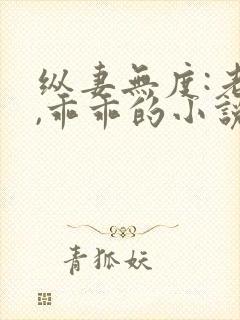 纵妻無度:老
,乖乖的小說
青狐妖